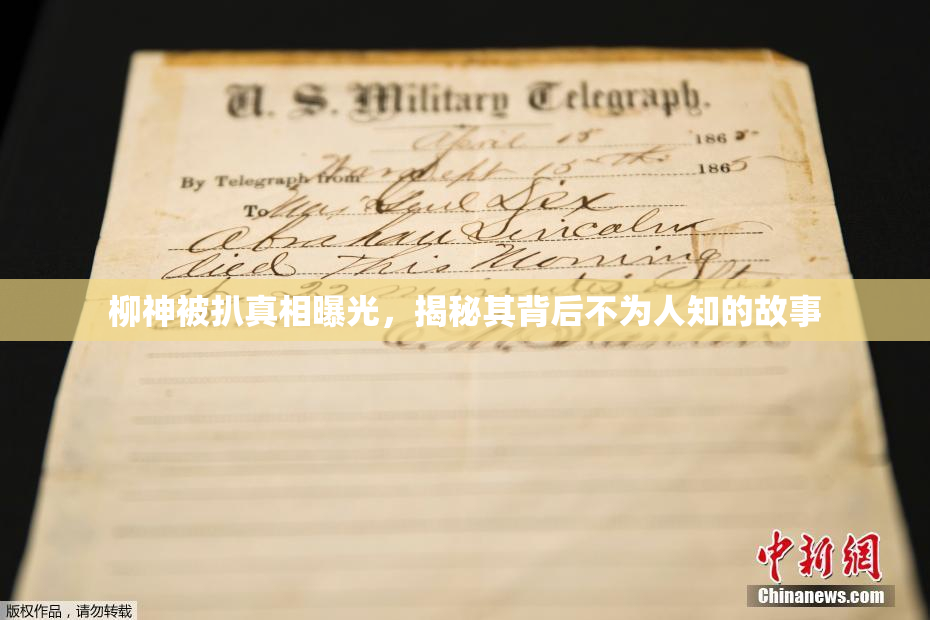 U. S. Military Telegraph.
April 15 1865
By Telegraph from War Dept 15th 1865
To Maj Genl Dix
Abraham Lincoln
died This Morning
at 22 minutes after
柳神被扒真相曝光，揭秘其背后不为人知的故事
E. M. Stanton
中新网
Chinanews.com
版权作品，请勿转载